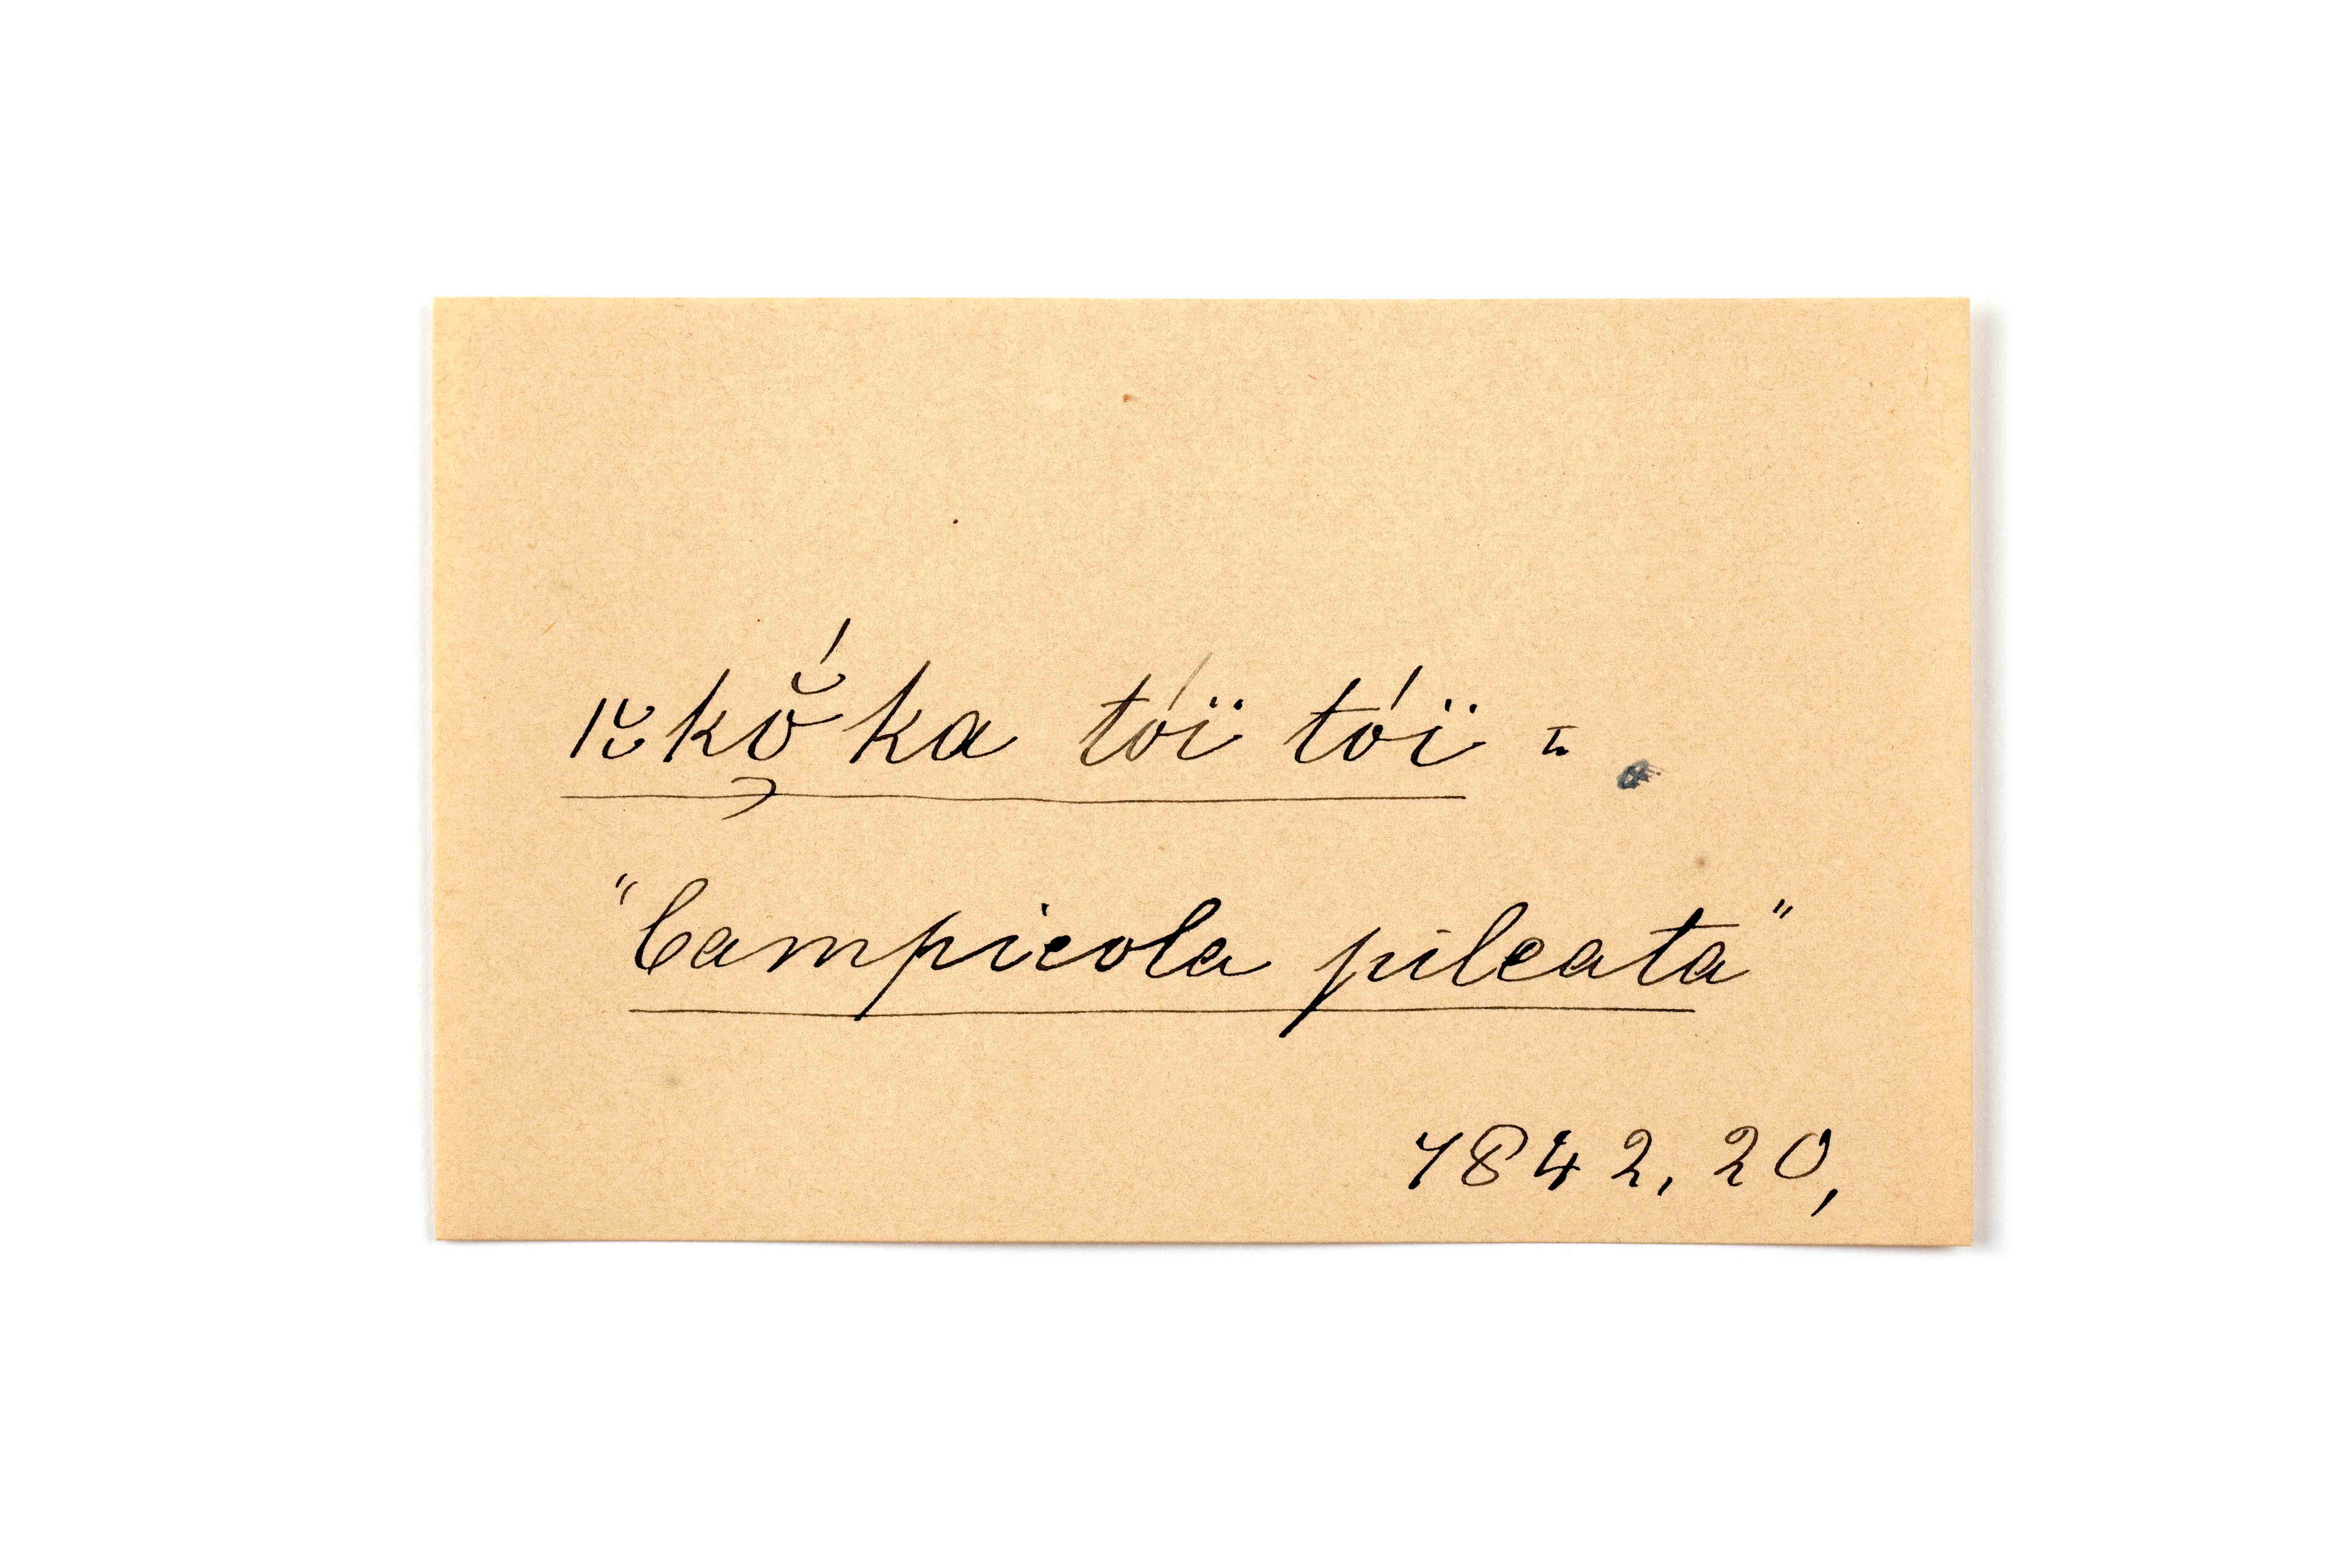 |ɣ̆kŏ́ka tóï tóï =
"Campicola pileata"
7842, 20,